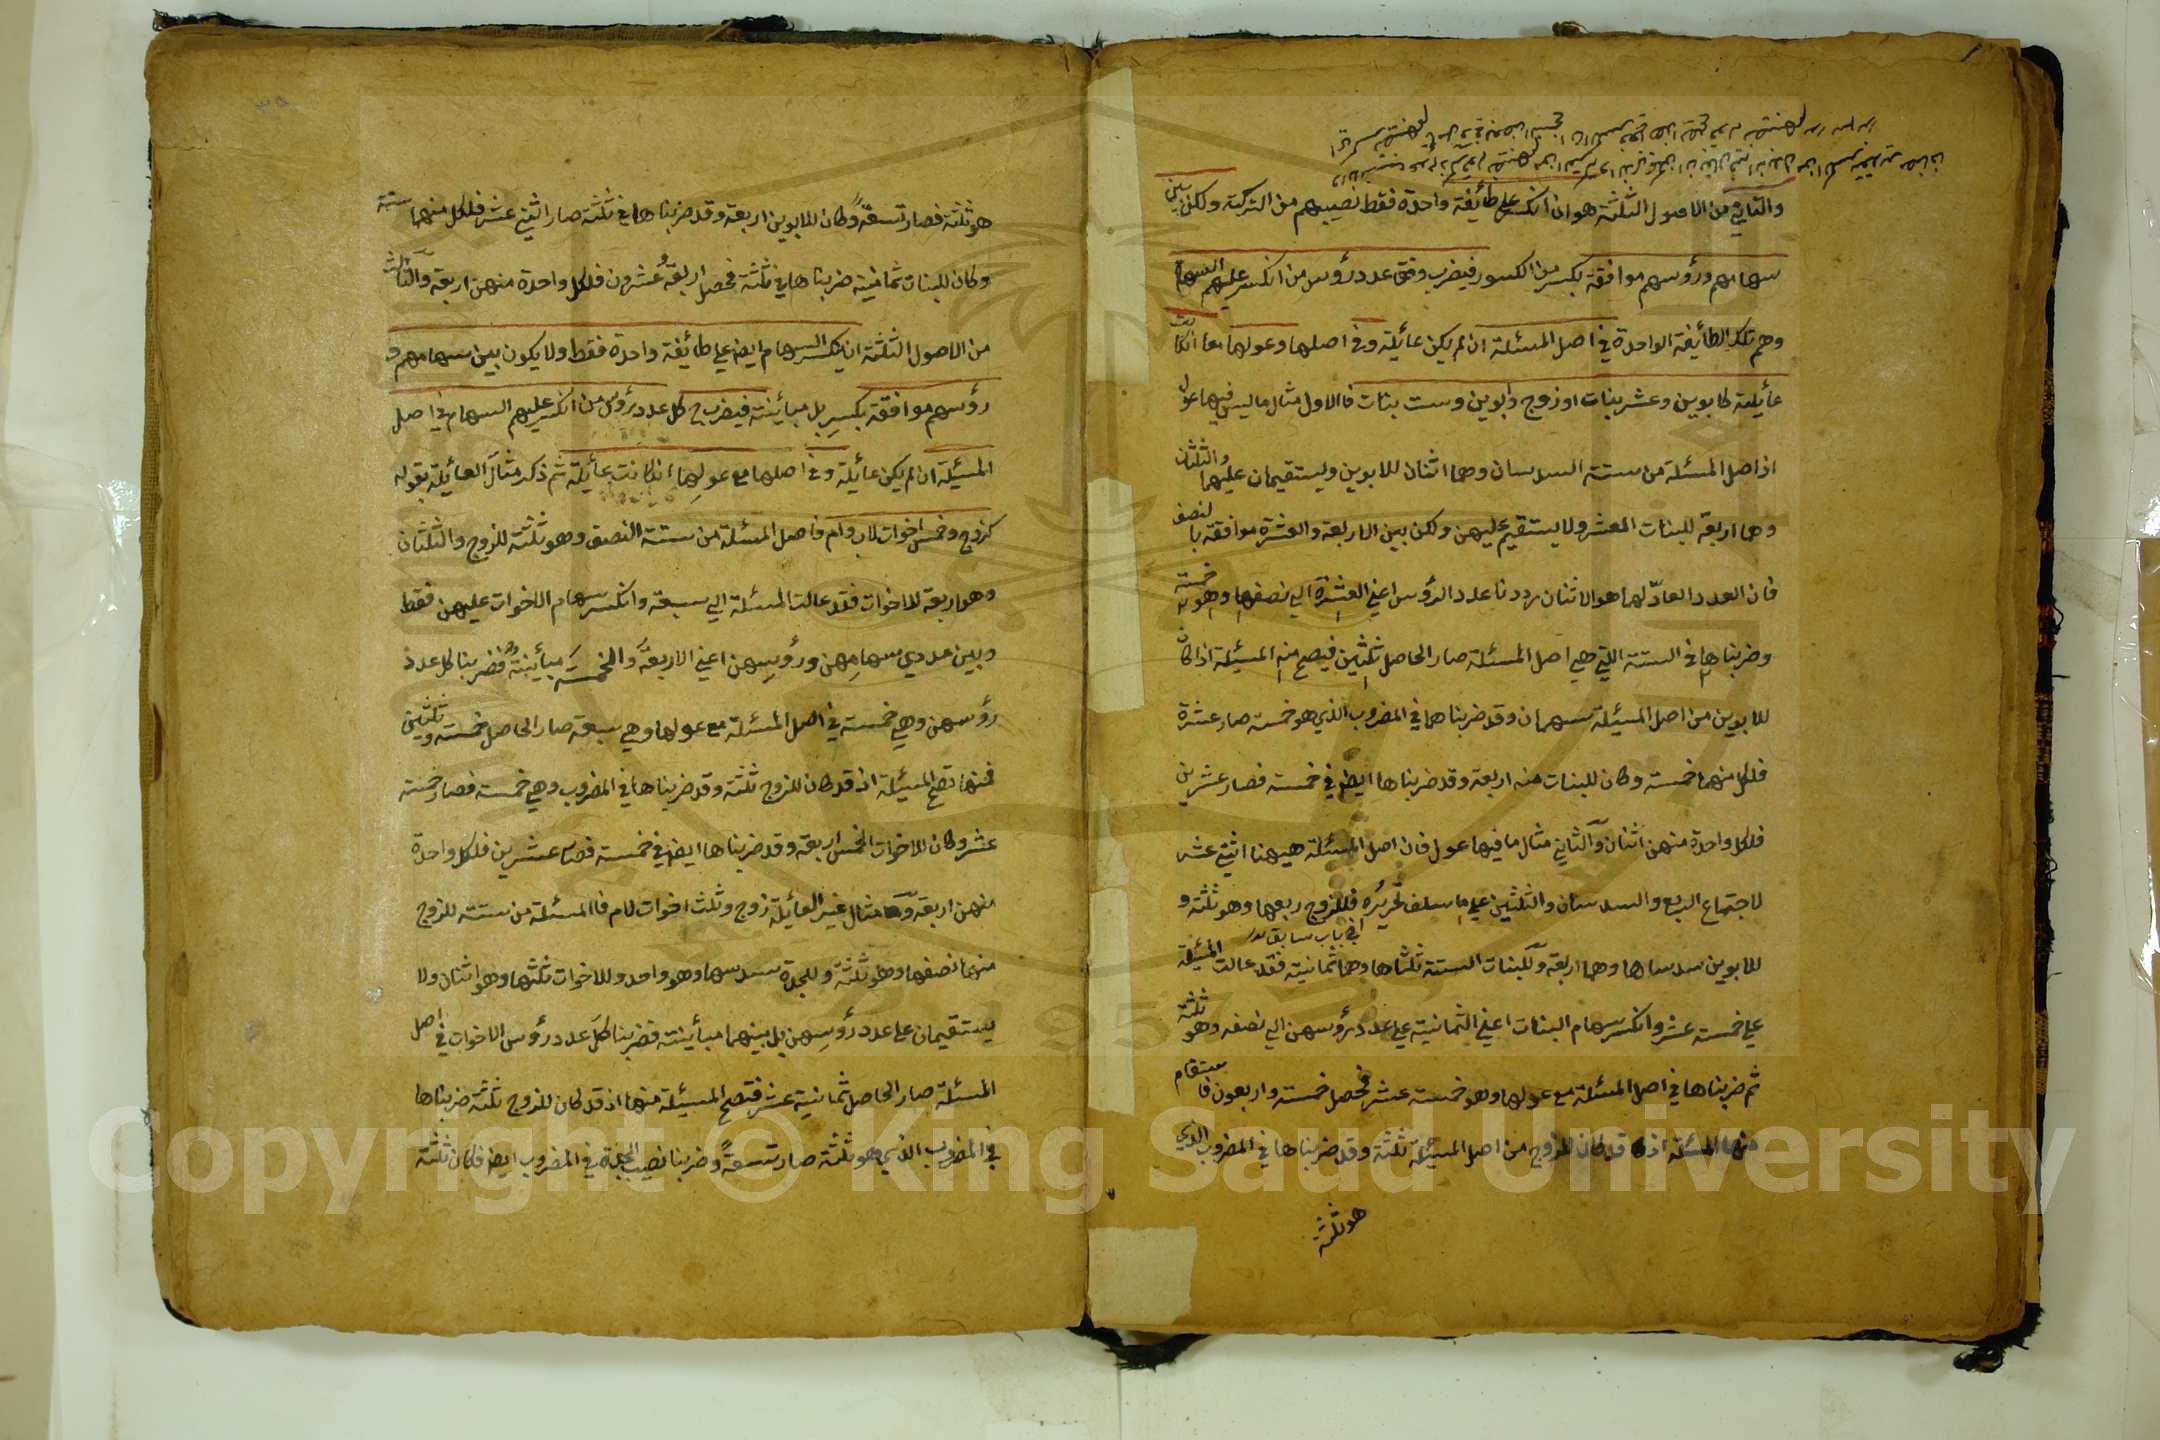 والثاني من الاصول الثلثة هو ان انكسر على طائفة واحدة فقط نصيبهم من التركة ولكن بين
سهامهم ورؤسهم موافقة بكسر من الكسور فيضرب وفق عدد رؤس من انكسر عليهم السهام
وهم تلك الطائفة الواحدة في اصل المسئلة ان لم يكن عائلة وفي اصلها وعولها معا ان كانت
عائلة كابوين وعشر بنات او زوج وابوين وست بنات فالاول مثال ما ليس فيها عول
اذ اصل المسئلة من ستة السدسان وهما اثنان للابوين ويستقيمان عليهما والثلثان
وهما اربعة للبنات العشر ولا يستقيم عليهن ولكن بين الاربعة والعشرة موافقة بالنصف
فان العدد العادّ لهما هو الاثنان رددنا عدد الرؤس اعني العشرة الي نصفها وهو خمسة
وضربناها في الستة التي هي اصل المسئلة صار الحاصل ثلثين فيصح منه المسئلة اذ كان
للابوين من اصل المسئلة سهمان وقد ضربناهما في المضروب الذي هو خمسة صار عشرة
فلكل منهما خمسة وكان للبنات منه اربعة وقد ضربناها ايضا في خمسة فصار عشرين
فلكل واحدة منهن اثنان والثاني مثال ما فيها عول فان اصل المسئلة هيهنا اثني عشر
لاجتماع الربع والسدسان والثلثين علي ما سلف تحريره فللزوج ربعها وهو ثلثة و
اي باب سابق
للابوين سدساها وهما اربعة وللبنات الستة ثلثاها وهما ثمانية فقد عالت المسئلة
علي خمسة عشر وانكسر سهام البنات اعني الثمانية علي عدد رؤسهن الي نصفه وهو ثلثة
ثم ضربناها في اصل المسئلة مع عولها وهو خمسة عشر فحصل خمسة واربعون فاستقام
منها المسئلة اذ قد كان للزوج من اصل المسئلة ثلثة وقد ضربناها في المضروب الذي
هو ثلثة
هو ثلثة فصار تسعة وكان للابوين اربعة وقد ضربناها في ثلثة صار اثني عشر فلكل منهما ستة
وكان للبنات ثمانية ضربناها في ثلثة فحصل اربعة وعشرون فلكل واحدة منهن اربعة والثالث
من الاصول الثلثة ان ينكسر السهام ايضا علي طائفة واحدة فقط ولا يكون بين سهامهم و
رؤسهم موافقة بكسر بل مبائنة فيضرب ح كل عدد رؤس من انكسر عليهم السهام في اصل
المسئلة ان لم يكن عائلة وفي اصلها مع عولها ان كانت عائلة ثم ذكر مثال العائلة بقوله
كزوج وخمس اخوات لاب وام فاصل المسئلة من ستة النصف وهو ثلثة للزوج والثلثان
وهو اربعة للاخوات فقد عالت المسئلة الي سبعة وانكسر سهام الاخوات عليهن فقط
وبين عددي سهامهن ورؤسهن اعني الاربعة والخمسة مبائنة فضربنا كل عدد
رؤسهن وهي خمسة في اصل المسئلة مع عولها وهي سبعة صار الحاصل خمسة وثلثين
فمنها تصح المسئلة اذ قد كان للزوج ثلثة وقد ضربناها في المضروب وهي خمسة فصار خمسة
عشر وكان للاخوات الخمس اربعة وقد ضربناها ايضا في خمسة فصار عشرين فلكل واحدة
منهن اربعة مثال غير العائلة زوج وثلث اخوات لام فالمسئلة من ستة للزوج
منها نصفها وهو ثلثة وللجدة سدسها وهو واحد وللاخوات ثلثها وهو اثنان ولا
يستقيمان علي عدد رؤسهن بل بينهما مبائنة فضربنا كل عدد رؤس الاخوات في اصل
المسئلة صار الحاصل ثمانية عشر فتصح المسئلة منها اذ قد كان للزوج ثلثة ضربناها
في المضروب الذي هو ثلثة صار تسعة وضربنا نصيب الجدة في المضروب ايضا فكان ثلثة
Copyright © King Saud University
1957